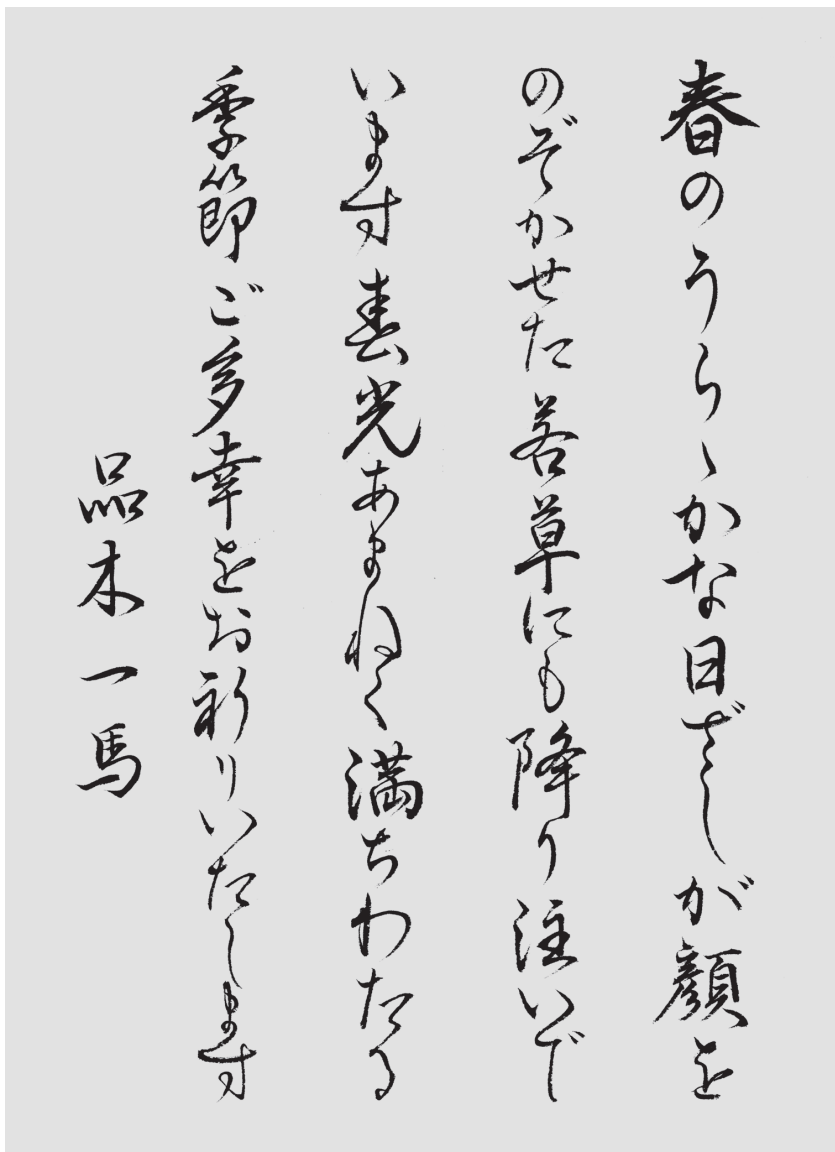 春のうらゝかな日ざしが顔を
のぞかせた若草にも降り注いで
います春光あまねく満ちわたる
季節ご多幸をお祈りいたします
品木一馬